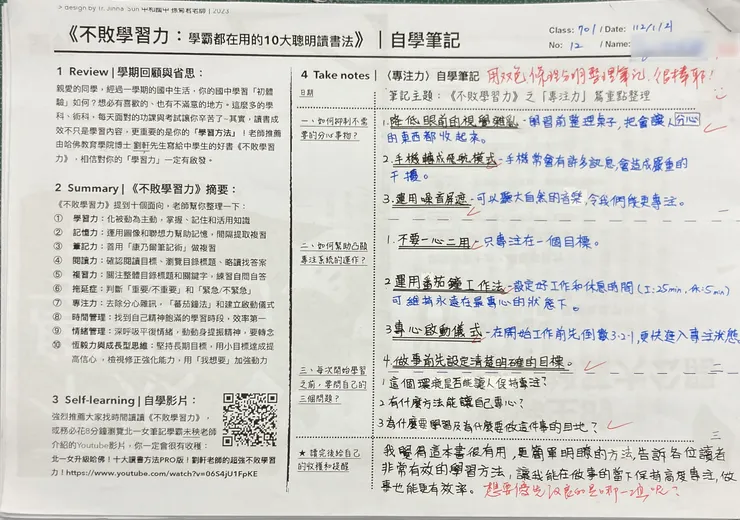 design by Tr. Jinna Sun 中和國中 孫菊君老師 | 2023
《不敗學習力：學霸都在用的10大聰明讀書法》｜自學筆記
Class: 701 / Date: 112/1/21
No: 12 / Name:
1 Review | 學期回顧與省思：
親愛的同學，經過一學期的國中生活，你的國中學習「初體
驗」如何？想必有喜歡的、也有不滿意的地方。這麼多的學
科、術科，每天面對的功課與考試讓你辛苦了~其實，讀書成
效不只是學習內容，更重要的是你的「學習方法」！老師推薦
由哈佛教育學院博士 劉軒先生寫給中學生的好書《不敗學習
力》，相信對你的「學習力」一定有啟發。
2 Summary | 《不敗學習力》摘要：
《不敗學習力》提到十個面向，老師幫你整理一下：
① 學習力：化被動為主動，掌握、記住和活用知識
② 記憶力：運用圖像和聯想力幫助記憶，間隔提取複習
③ 筆記力：善用「康乃爾筆記術」做複習
④ 閱讀力：確認閱讀目標、瀏覽目錄標題、略讀找答案
⑤ 複習力：關注整體目錄標題和關鍵字，練習自問自答
⑥ 拖延症：判斷「重要/不重要」和「緊急/不緊急」
⑦ 專注力：去除分心雜訊，「蕃茄鐘法」和建立啟動儀式
⑧ 時間管理：找到自己精神飽滿的學習時段，效率第一
⑨ 情緒管理：深呼吸平復情緒，動動身提振精神，要轉念
⑩ 恆毅力與成長型思維：堅持長期目標，用小目標達成提
高信心、檢視修正強化能力，用「我想要」加強動力
3 Self-learning | 自學影片：
強烈推薦大家找時間讀讀《不敗學習力》，
或務必花8分鐘瀏覽北一女筆記學霸未秧老師
介紹的Youtube影片，你一定會很有收穫：
北一女升級給佛！十大讀書方法PRO版！劉軒老師的超強不敗學習
力！https://www.youtube.com/watch?v=06S4jU1FpKE
4 Take notes |〈專注力〉自學筆記 用双色、條理分明整理筆記，很棒耶！
日期
筆記主題：《不敗學習力》之「專注力」篇重點整理
一、如何抑制不需
要的分心事物？
1.降低眼前的視覺雜亂－學習前整理桌子，把會讓人分心
的東西都收起來。
2.手機轉成飛航模式－手機常會有許多訊息，會造成嚴重的
干擾。
3.運用噪音屏遮－可以聽大自然的音樂，令我們能更專注。
二、如何幫助凸顯
專注系統的運作？
1.不要一心二用－只專注在一個目標。
2 運用番茄鐘工作法－設定好工作和休息時間（工:25min,休:5min）
可維持永遠在最專心的狀態下。
3 專心啟動儀式－在開始工作前先倒數3-2-1，更快進入專注狀態
4.做事前先設定清楚明確的目標。
三、每次開始學習
之前，要問自己的
三個問題？
1 這個環境是否能讓人保持專注？
2.有什麼方法能讓自己專心？
3 為什麼要學習及為什麼要做這件事的目地？
★ 讀完後給自己
的收穫和提醒
我覺得這本書很有用，更簡單明瞭的方法，告訴各位讀者
非常有效的學習方法，讓我能在做事的當下保持高度專注，做
事也能更有效率。想要優先改良的是哪一項呢？